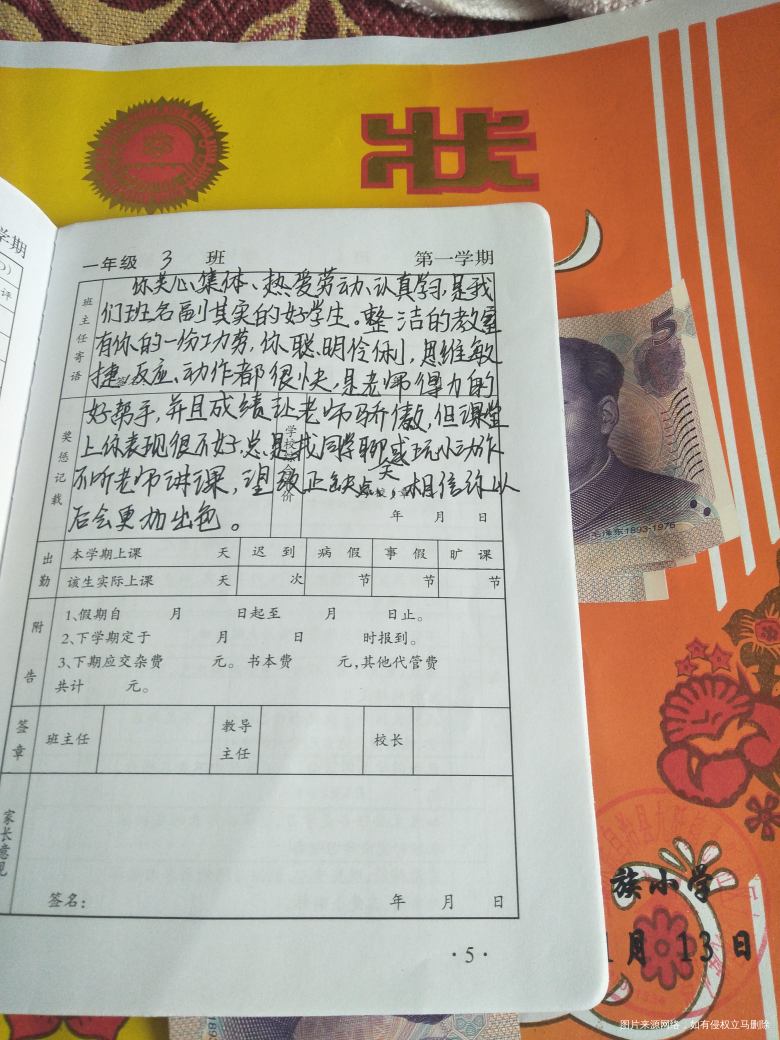 状
学期
评
一年级 3 班 第一学期
班主任寄语
你关心集体、热爱劳动、认真学习,是我
们班名副其实的好学生。整洁的教室
有你的一份功劳,你聪明伶俐,思维敏
捷,反应、动作都很快,是老师得力的
好帮手,并且成绩让老师骄傲,但课堂
上你表现很不好,总是找同学聊天或玩小动作
不听老师讲课,望级正缺点,相信你以
后会更加出色。
奖惩记载
学校综合评价
年 月 日
出勤
本学期上课 天 迟到 病假 事假 旷课
该生实际上课 天 次 节 节 节
附告
1、假期自 月 日起至 月 日止。
2、下学期定于 月 日 时报到。
3、下期应交杂费 元。书本费 元,其他代管费
共计 元。
签章
班主任 教导主任 校长
家长意见
签名: 年 月 日
·5·
5
毛泽东1893-1976
族小学
1月 13日
图片来源网络,如有侵权立马删除